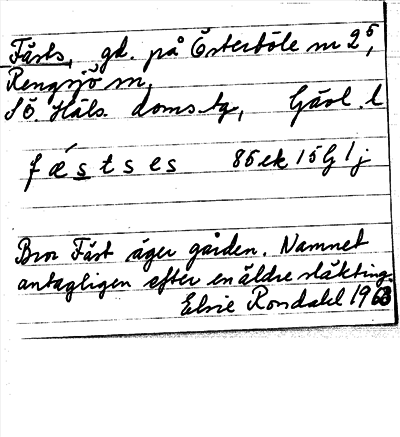 Fästs, gd. på Österböle nr 2⁵,
Rengsjö sn,
Sö. Häls. doms.-tg, Gävl. l
fæ´stses 85 ek 15 G 1 j
Bror Fäst äger gården. Namnet
antagligen efter en äldre släkting.
Elsie Rondahl 1963